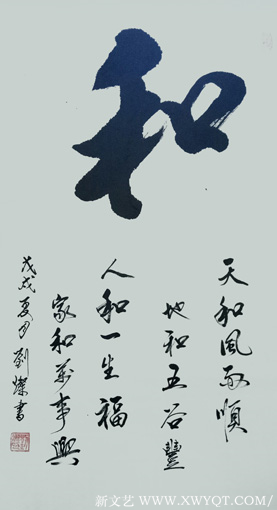 和
天和风雨順
地和五谷豐
人和一生福
家和万事興
戊戌夏月劉燦書
新文艺 WWW.XWYQT.COM